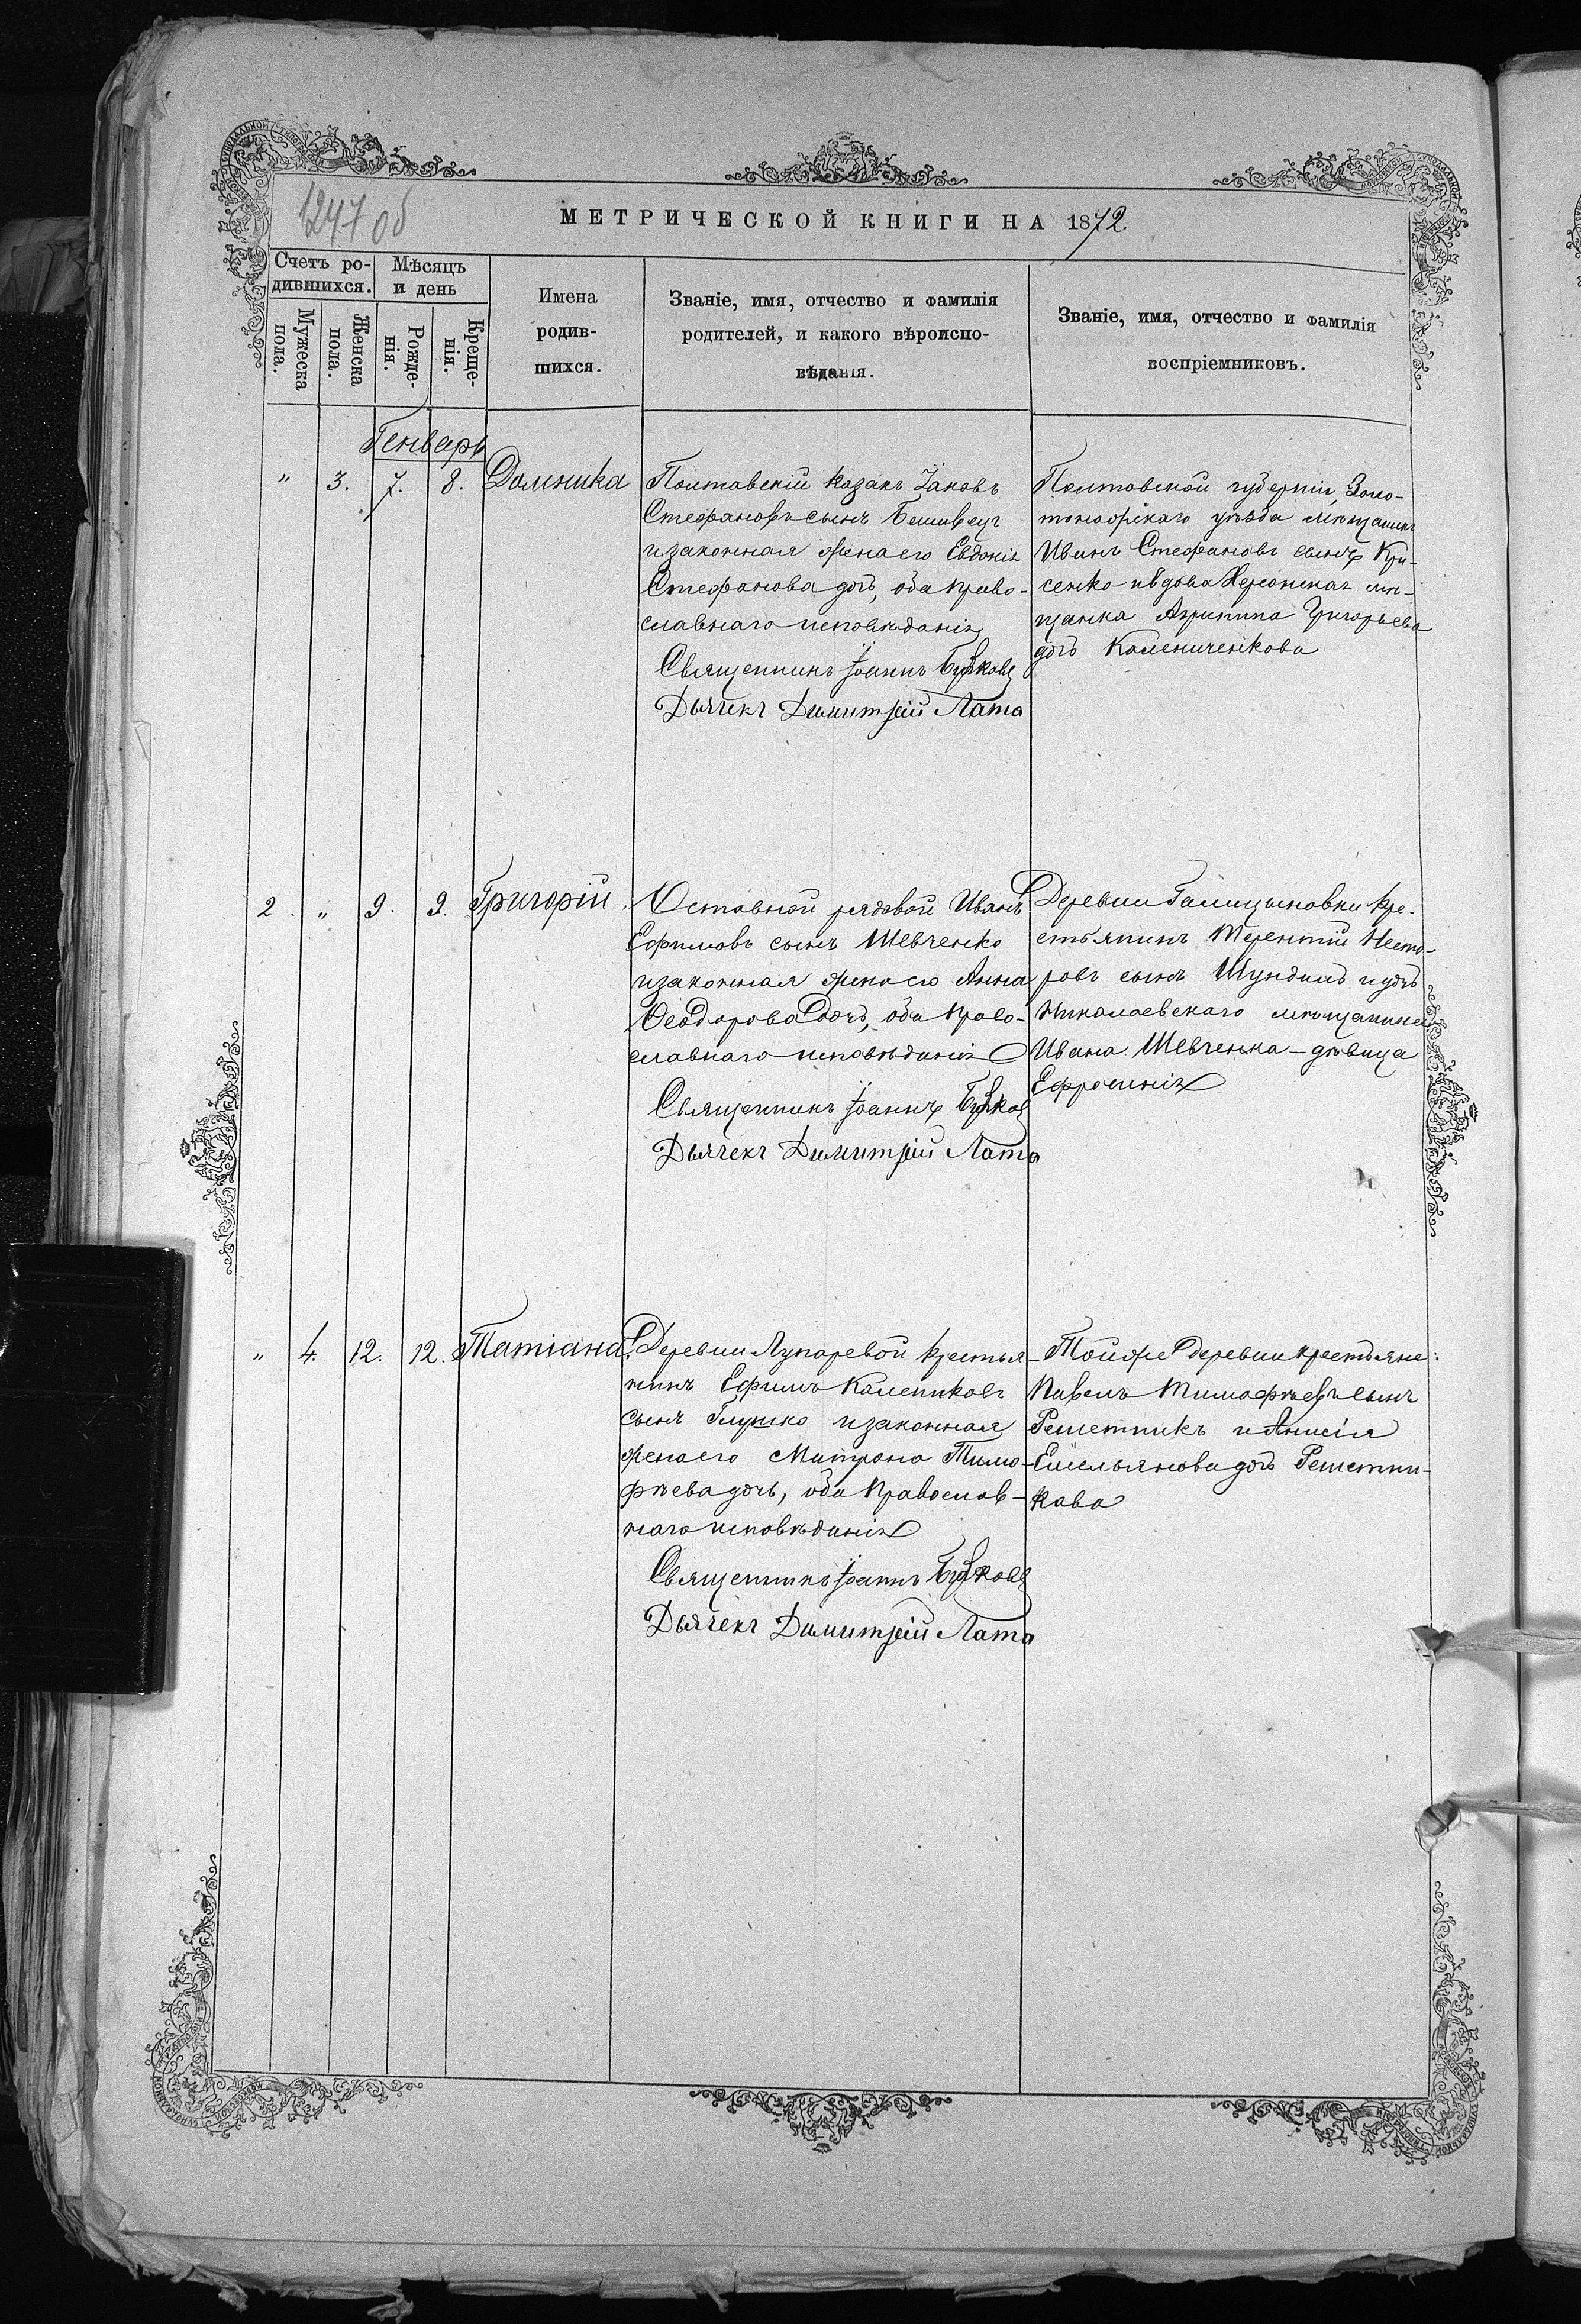 1247 об
МЕТРИЧЕСКОЙ КНИГИ НА 1872.
Счетъ ро-
дившихся.
Мужеска
пола.
Женска
пола.
Мѣсяцъ
и день
Рожде-
нія.
Креще-
нія.
Имена
родив-
шихся.
Званіе, имя, отчество и фамилія
родителей, и какого вѣроиспо-
вѣданія.
Званіе, имя, отчество и фамилія
воспріемниковъ.
Генварь
" 3. 7. 8. Домника
Полтавскій казакъ Іаковъ
Стефановъ сынъ Бешивецъ
и законная жена его Евдокія
Стефанова дочь, оба право-
славнаго исповѣданія
Священникъ Іоаннъ
Дьячекъ Димитрій Лата
Полтавской губерніи Золо-
тоношскаго уѣзда мѣщанинъ
Иванъ Стефановъ сынъ Кри-
сенко и вдова Херсонская мѣ-
щанка Агрипина Григорьева
дочь Калениченкова
2. " 9. 9. Григорій
Отставной рядовой Иванъ
Ефимовъ сынъ Шевченко
и законная жена его Анна
Ѳеодорова дочь, оба право-
славнаго исповѣданія
Священникъ Іоаннъ
Дьячекъ Димитрій Лата
Деревни Галицыновки кре-
стьянинъ Терентій Несто-
ровъ сынъ и дочь
Николаевскаго мѣщанина
Ивана Шевченка - дѣвица
Ефросинія
" 4. 12. 12. Татіана
Деревни Лупаревой крестья-
нинъ Ефимъ Калениковъ
сынъ Глушко и законная
жена его Матрона Тимо-
фѣева дочь, оба православ-
наго исповѣданія
Священникъ Іоаннъ
Дьячекъ Димитрій Лата
Той же деревни крестьяне:
Павелъ Тимофѣевъ сынъ
Решетникъ и Анисія
Емельянова дочь Решетни-
кова